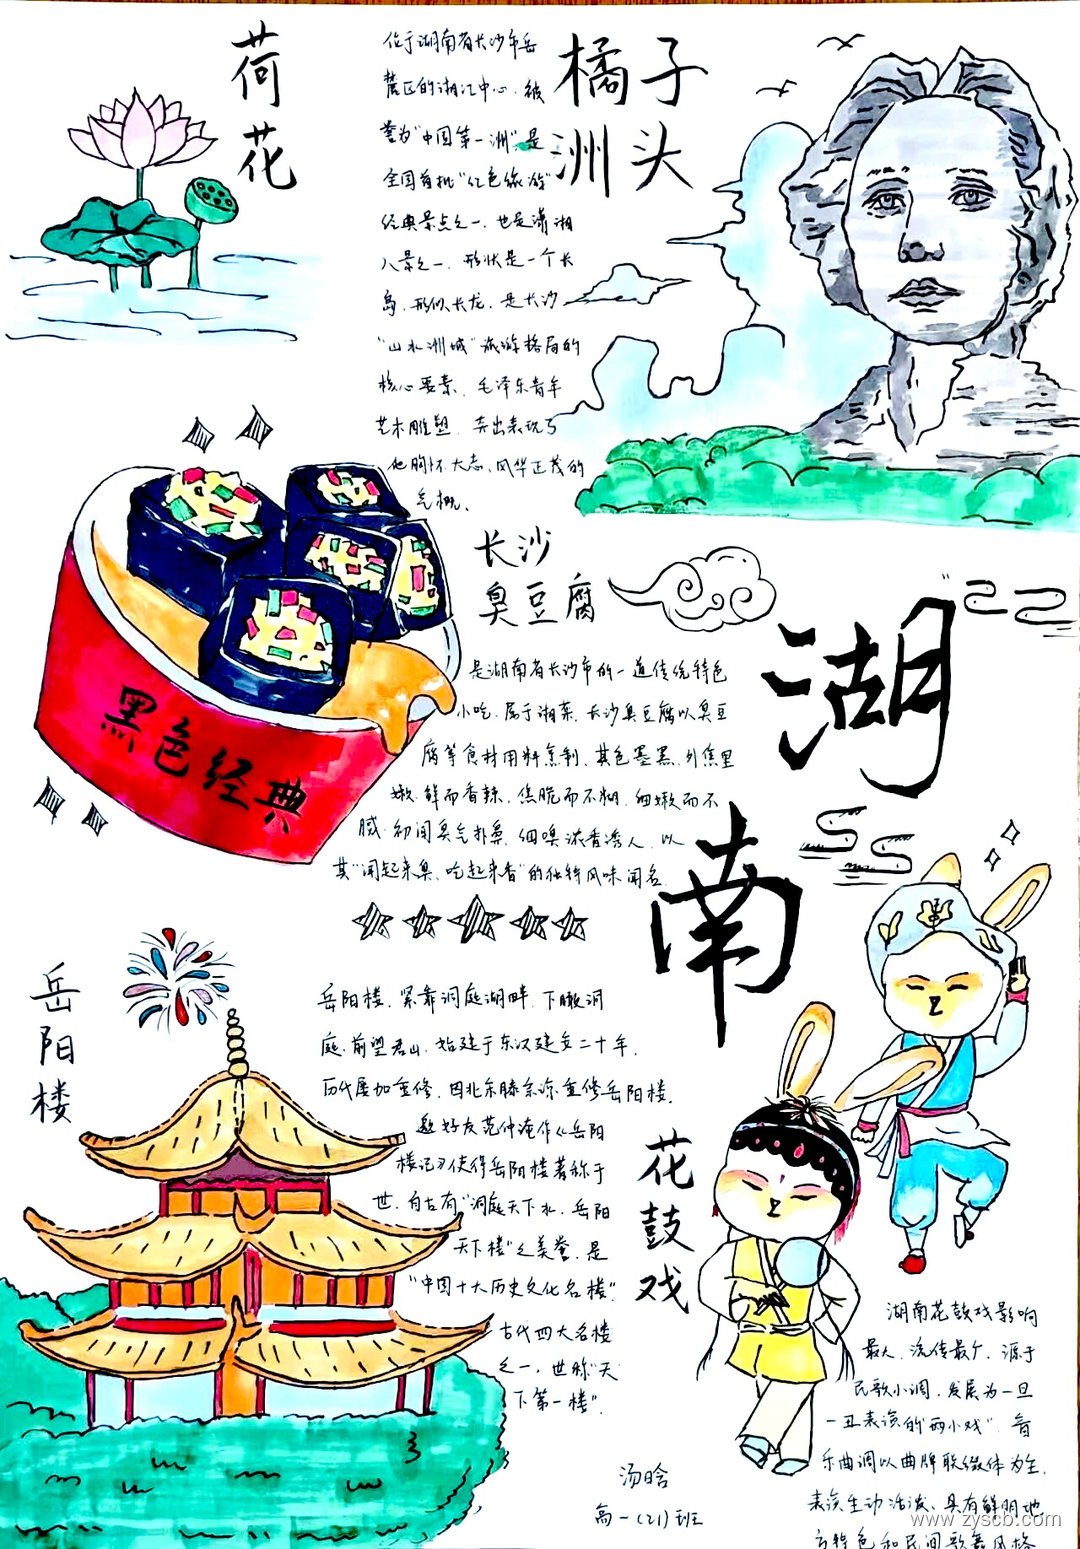 荷
花
位于湖南省长沙市岳
麓区的湘江中心,被
誉为"中国第一洲",是
全国首批"红色旅游"
经典景点之一,也是潇湘
八景之一,形状是一个长
岛,形似长龙,是长沙
"山水洲城"旅游格局的
核心要素,毛泽东青年
艺术雕塑,突出表现了
他胸怀大志、风华正茂的
气概。
橘子
洲头
长沙
臭豆腐
是湖南省长沙市的一道传统特色
小吃,属于湘菜,长沙臭豆腐以臭豆
腐等食材用料烹制,其色墨黑,外焦里
嫩,鲜而香辣,焦脆而不糊,细嫩而不
腻,初闻臭气扑鼻,细嗅浓香诱人,以
其"闻起来臭、吃起来香"的独特风味闻名
黑色经典
湖
南
岳
阳
楼
岳阳楼,紧靠洞庭湖畔,下瞰洞
庭,前望君山,始建于东汉建安二十年,
历代屡加重修,因北宋滕宗谅重修岳阳楼,
邀好友范仲淹作《岳阳
楼记》使得岳阳楼著称于
世,自古有"洞庭天下水,岳阳
天下楼"之美誉,是
"中国十大历史文化名楼"
古代四大名楼
之一,世称"天
下第一楼"。
花
鼓
戏
湖南花鼓戏影响
最大,流传最广,源于
民歌小调,发展为一旦
一丑表演的"两小戏",音
乐曲调以曲牌联缀体为主,
表演生动活泼,具有鲜明地
方特色和民间歌舞风格
汤晗
高一(21)班
www.zyscb.com